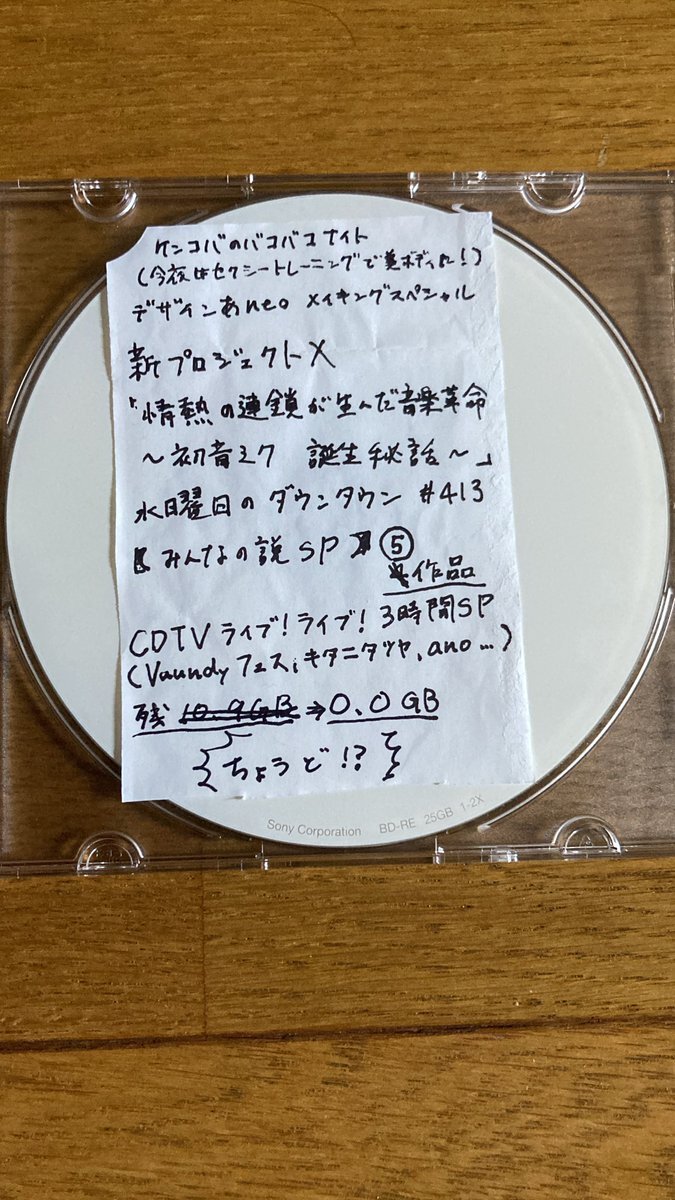 ケンコバのバコバコナイト
(今夜はセクシートレーニングで美ボディに!)
デザインあneo メイキングスペシャル
新プロジェクトX
「情熱の連鎖が生んだ音楽革命
～初音ミク 誕生秘話～」
水曜日のダウンタウン #413
【みんなの説SP】 ⑤
作品
CDTVライブ!ライブ! 3時間SP
(Vaundyフェス、キタニタツヤ、ano…)
残 10.9GB⇒0.0GB
ちょうど!?
Sony Corporation BD-RE 25GB 1-2X